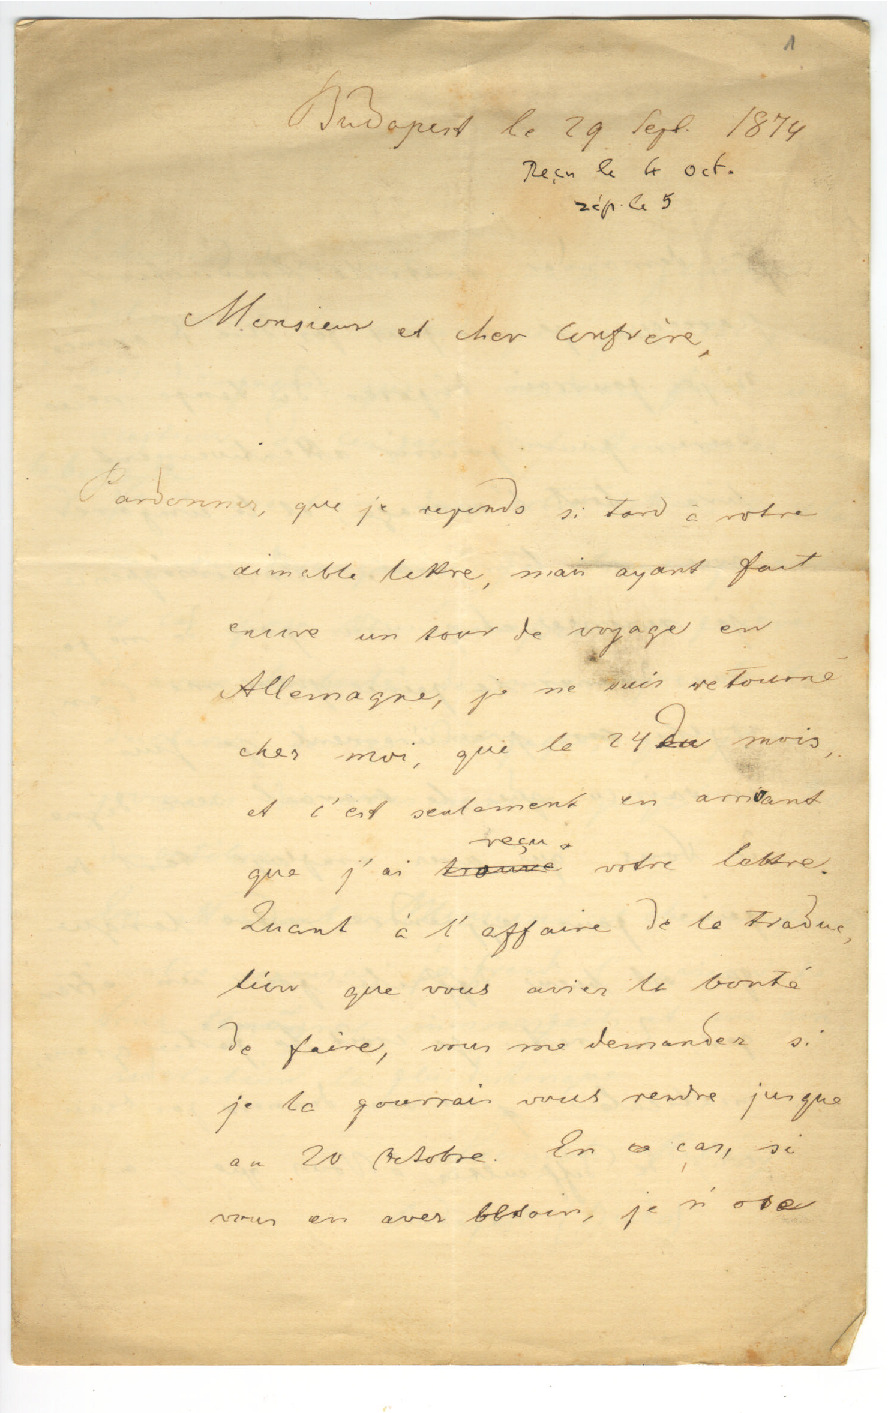 1
Budapest le 29 Sept. 1874
Reçu le 4 oct.
rép. le 5
Monsieur et cher Confrère,
Pardonnez, que je reponds si tard à votre
aimable lettre, mais ayant fait
encore un tour de voyage en
Allemagne, je ne suis retourné
chez moi, que le 24 du mois,
et c'est seulement en arrivant
reçu
que j'ai trouvé votre lettre.
Quant à l'affaire de la traduc,
tion que vous aviez la bonté
de faire, vous me demandez si
je la pourrais vous rendre jusque
au 20 Octobre. En ce ças, si
vous en avez besoin, je n'ose